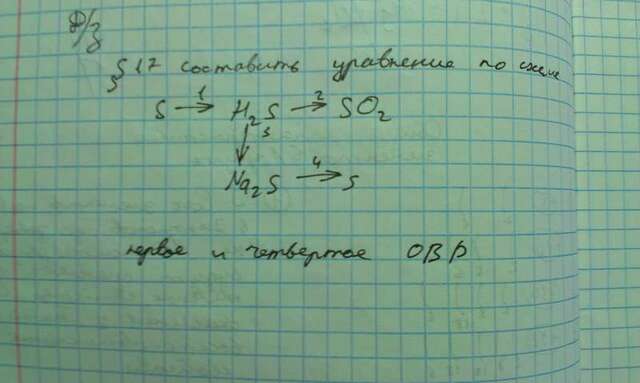 Д/з
§ 17 составить уравнение по схеме
S 1→ H₂S 2→ SO₂
3↓
Na₂S 4→ S
первое и четвертое ОВР